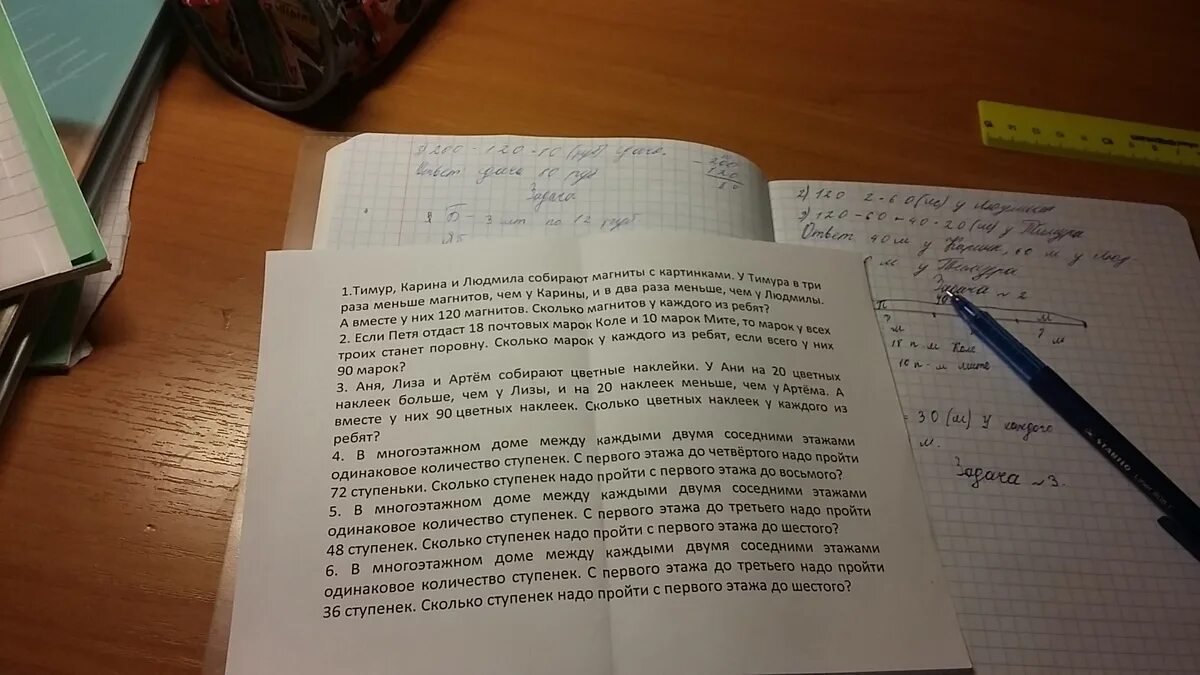 200
- 120
Ответ сдача 80 руб
Задача
3 шт по 12 руб
2) 120 2 = 60 (м) у Людмилы
3) 120 - 60 - 40 = 20 (м) у Тимура
Ответ 40 м у Карины, 60 м у Люд-
м у Тимура
Задача ~ 2
П
М
?
м
? м
18 п - м Коле
10 п - м Мите
= 30 (м) у каждого
м.
Задача ~ 3.
1.Тимур, Карина и Людмила собирают магниты с картинками. У Тимура в три
раза меньше магнитов, чем у Карины, и в два раза меньше, чем у Людмилы.
А вместе у них 120 магнитов. Сколько магнитов у каждого из ребят?
2. Если Петя отдаст 18 почтовых марок Коле и 10 марок Мите, то марок у всех
троих станет поровну. Сколько марок у каждого из ребят, если всего у них
90 марок?
3. Аня, Лиза и Артём собирают цветные наклейки. У Ани на 20 цветных
наклеек больше, чем у Лизы, и на 20 наклеек меньше, чем у Артёма. А
вместе у них 90 цветных наклеек. Сколько цветных наклеек у каждого из
ребят?
4. В многоэтажном доме между каждыми двумя соседними этажами
одинаковое количество ступенек. С первого этажа до четвёртого надо пройти
72 ступеньки. Сколько ступенек надо пройти с первого этажа до восьмого?
5. В многоэтажном доме между каждыми двумя соседними этажами
одинаковое количество ступенек. С первого этажа до третьего надо пройти
48 ступенек. Сколько ступенек надо пройти с первого этажа до шестого?
6. В многоэтажном доме между каждыми двумя соседними этажами
одинаковое количество ступенек. С первого этажа до третьего надо пройти
36 ступенек. Сколько ступенек надо пройти с первого этажа до шестого?
STABILO